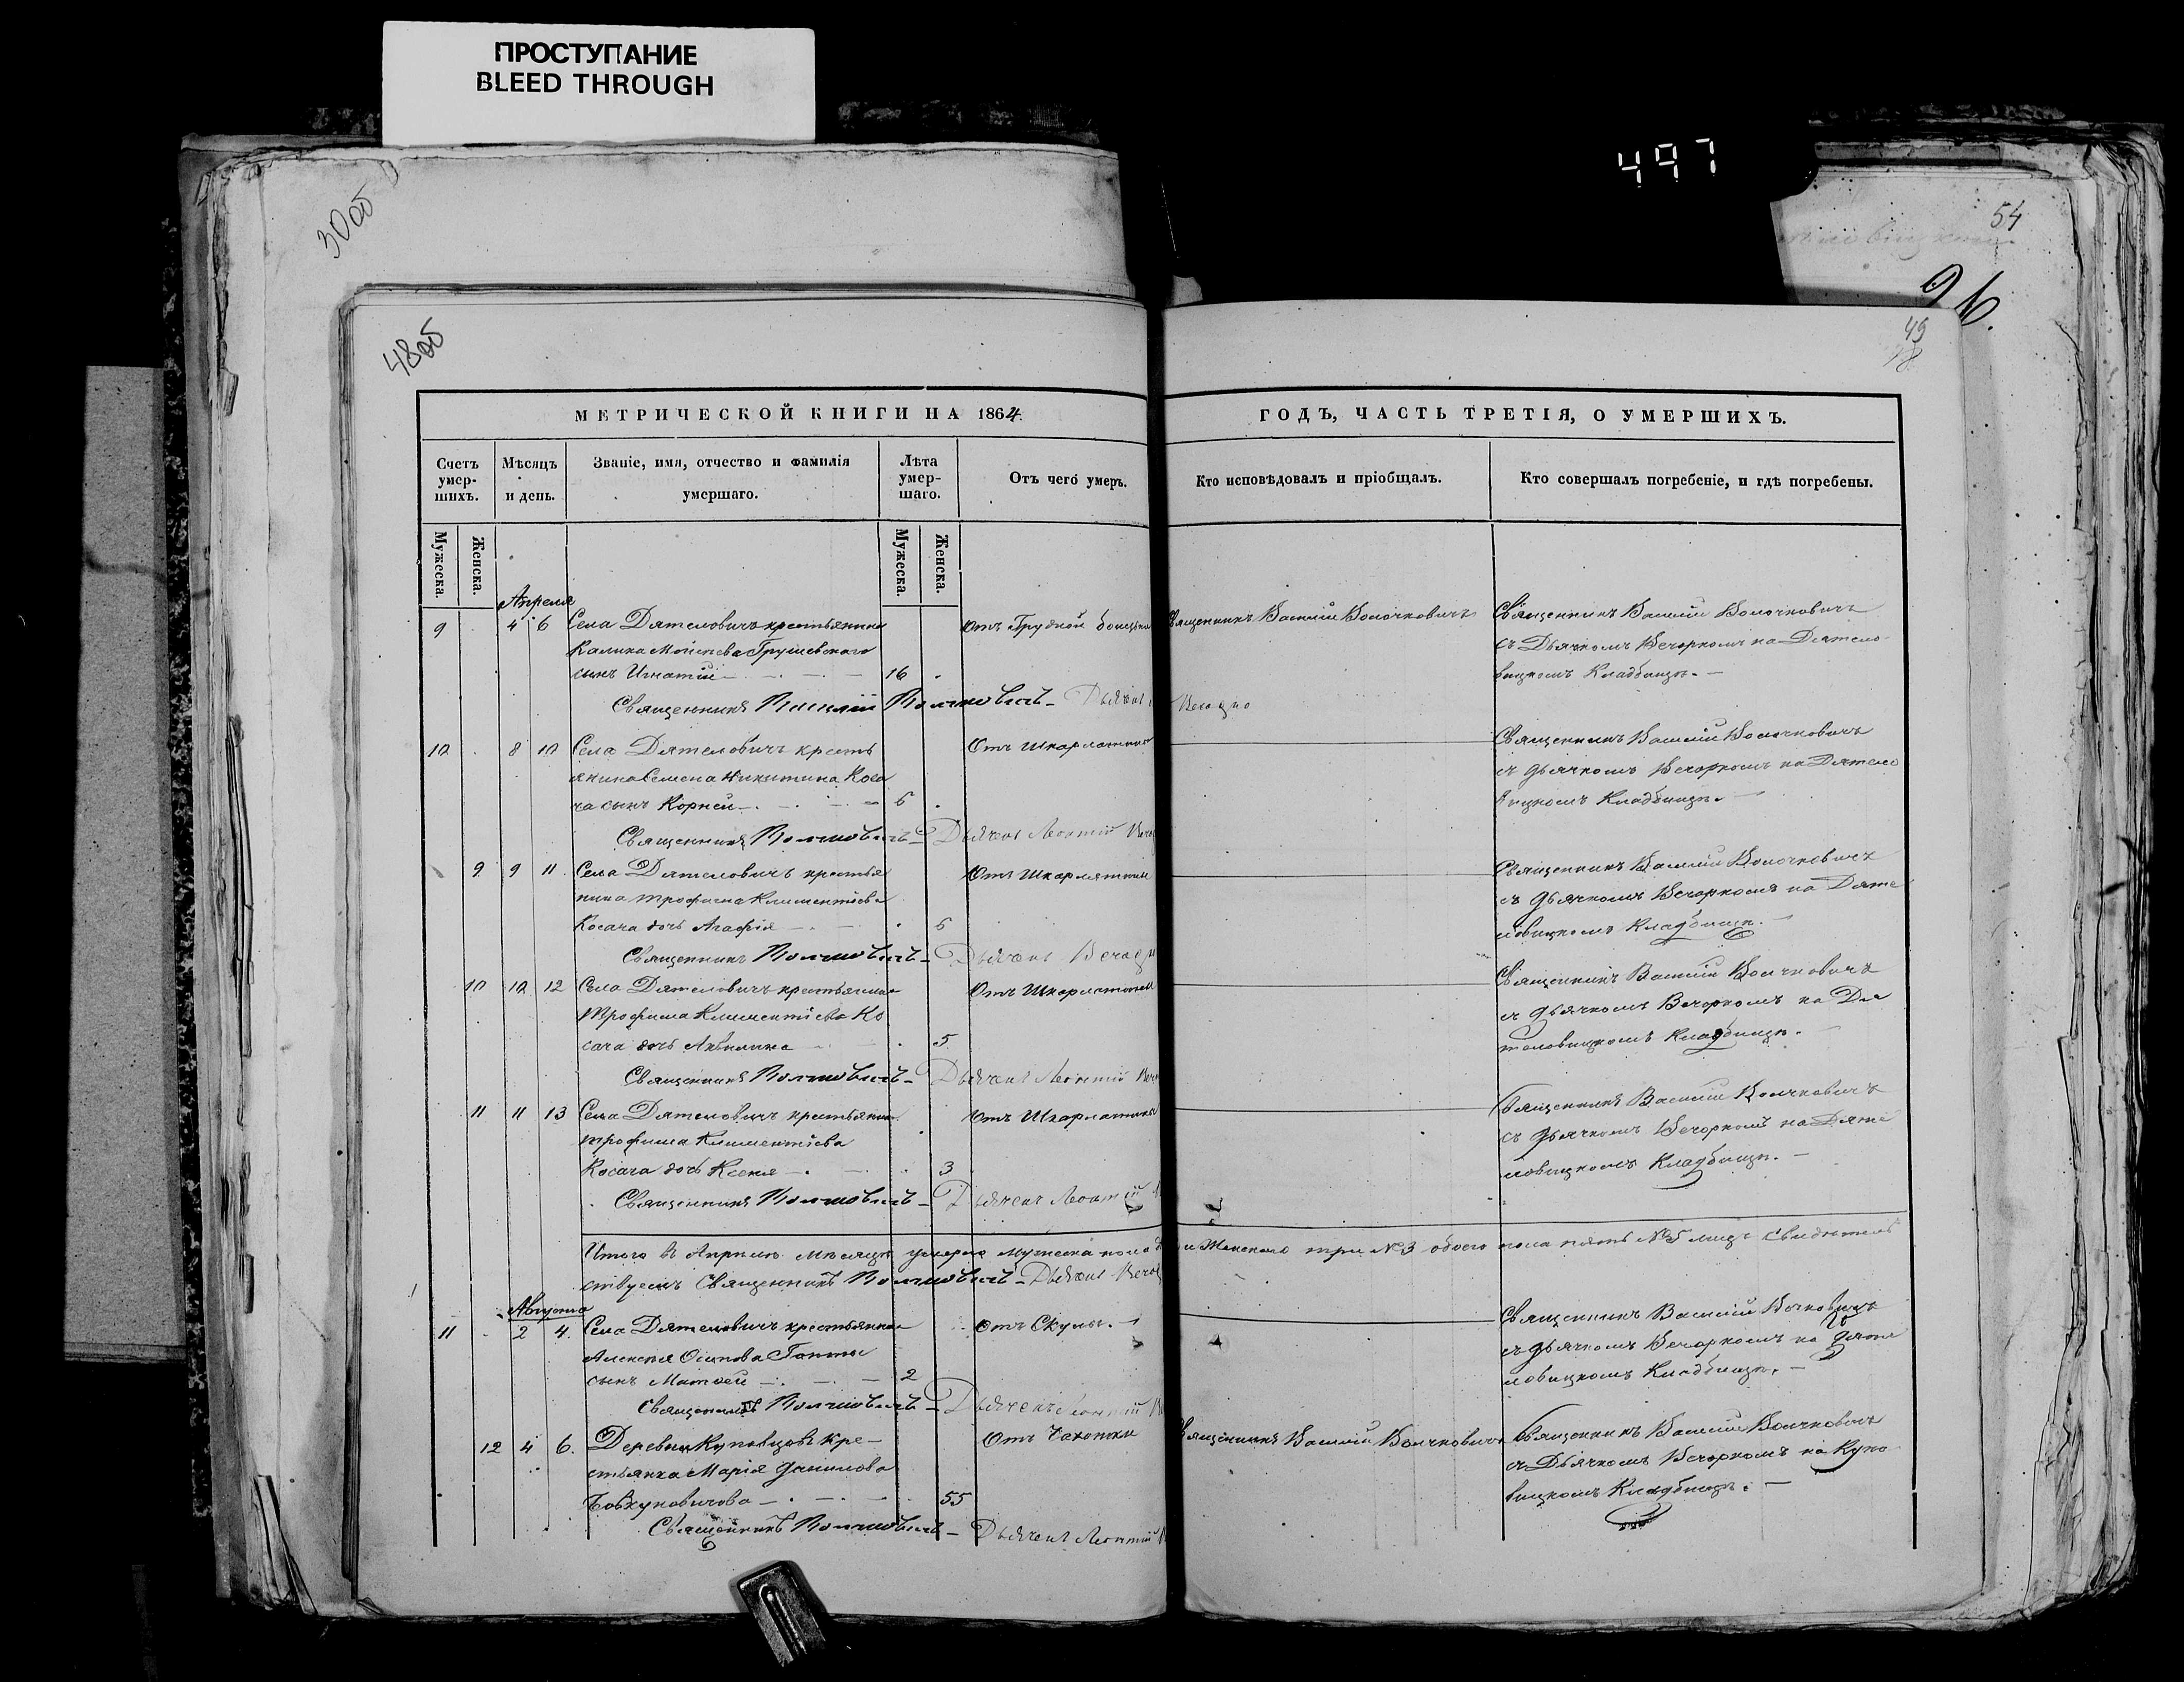 ПРОСТУПАНИЕ
BLEED THROUGH
497
30об
54
96.
48об
49
МЕТРИЧЕСКОЙ КНИГИ НА 1864
ГОДЪ, ЧАСТЬ ТРЕТІЯ, О УМЕРШИХЪ.
Счетъ умер-шихъ.
Мѣсяцъ и день.
Званіе, имя, отчество и фамилія умершаго.
Лѣта умер-шаго.
Отъ чего умеръ.
Кто исповѣдовалъ и пріобщалъ.
Кто совершалъ погребеніе, и гдѣ погребены.
Мужеска.
Женска.
Мужеска.
Женска.
Апреля
9 4 6 Села Дятеловичъ крестьянина Отъ Грудной Священникъ Василій Волочковичъ Священникъ Василій Волочковичъ
Калина Моисеева Грушевскаго съ Дьячкомъ Вечоркомъ на Дятело
сынъ Игнатій 16 вицкомъ Кладбищѣ.
Священникъ Василій Волочковичъ Дьячекъ
10 8 10 Села Дятеловичъ кресть Отъ Шкарлатины Священникъ Василій Волочковичъ
янина Семена Никитина Коса съ дьячкомъ Вечоркомъ на Дятело
ча сынъ Корней 6 вицкомъ Кладбищѣ.
Священникъ Волочковичъ Дьячекъ Леонтій
9 9 11 Села Дятеловичъ крестья Отъ Шкарлятины Священникъ Василій Волочковичъ
нина Трофима Климентіева съ дьячкомъ Вечоркомъ на Дяте
Косача дочь Агафія 6 ловицкомъ Кладбищѣ.
Священникъ Волочковичъ Дьячекъ
10 10 12 Села Дятеловичъ крестьянина Отъ Шкарлатины Священникъ Василій Волочковичъ
Трофима Климентіева Ко съ дьячкомъ Вечоркомъ на Дя
сача дочь Акилина 5 теловицкомъ Кладбищѣ.
Священникъ Волочковичъ Дьячекъ Леонтій
11 11 13 Села Дятеловичъ крестьянина Отъ Шкарлатины Священникъ Василій Волочковичъ
Трофима Климентіева съ дьячкомъ Вечоркомъ на Дяте
Косача дочь Ксенія 3 ловицкомъ Кладбищѣ.
Священникъ Волочковичъ Дьячекъ Леонтій
Итого въ Апрѣлѣ мѣсяцѣ умерло мужеска пола и Женскаго три №3 обоего пола пять №5 лицъ свидѣтель
ствуемъ Священникъ Волочковичъ Дьячекъ
Августа
11 2 4. Села Дятеловичъ крестьянина Отъ Священникъ Василій
Алексѣя Осипова съ дьячкомъ Вечоркомъ на Дяте
сынъ Матвей 2 ловицкомъ Кладбищѣ.
Священникъ Волочковичъ Дьячекъ Леонтій
12 4 6. Деревни Куповцовъ кре- Отъ Чахотки Священникъ Василій Волочковичъ Священникъ Василій Волочковичъ
стьянка Марія Данилова съ Дьячкомъ Вечоркомъ на Купо
55 вицкомъ Кладбищѣ.
Священникъ Волочковичъ Дьячекъ Леонтій